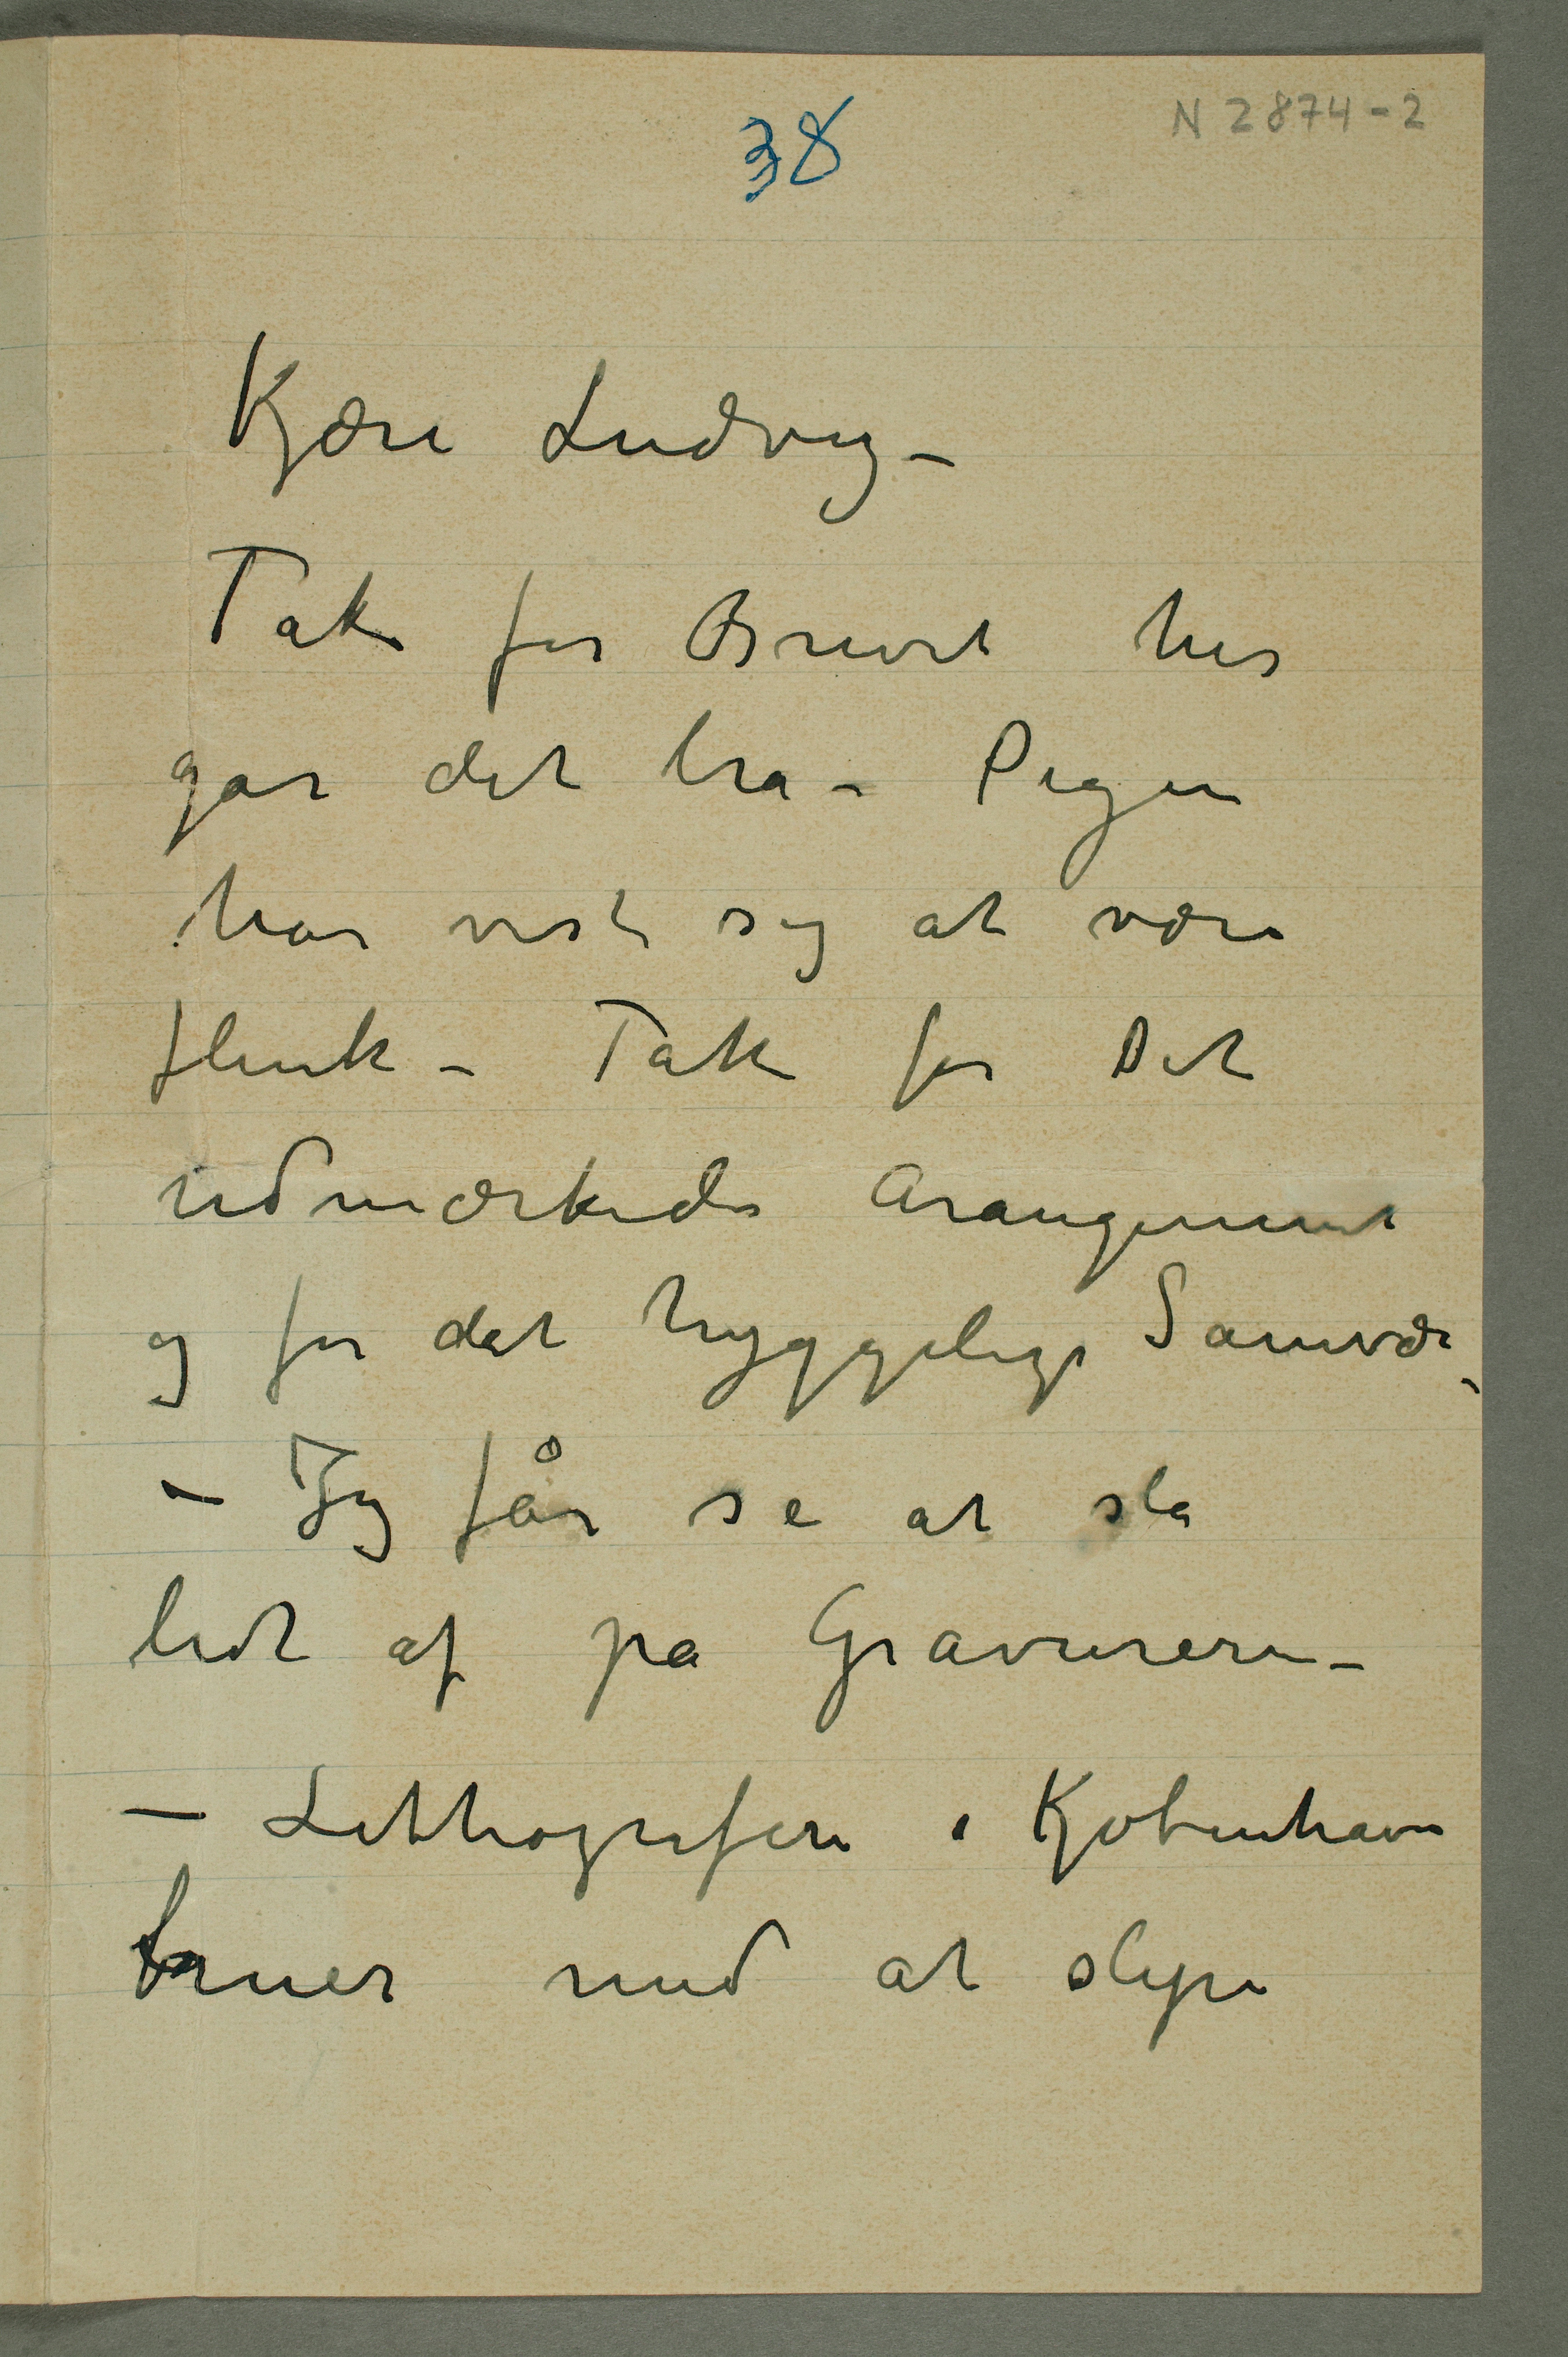 38
N 2874-2
Kjære Ludvig –
Tak for Brevet her
gar det bra – Pigen
har vist sig at være
flink – Tak for Dit
udmærkede Arangement
og for det hyggelige Samvær –
– Jeg får se at sla
lidt af på Gravurerne –
– Lithografen i Kjøbenhavn
truer med at slipe